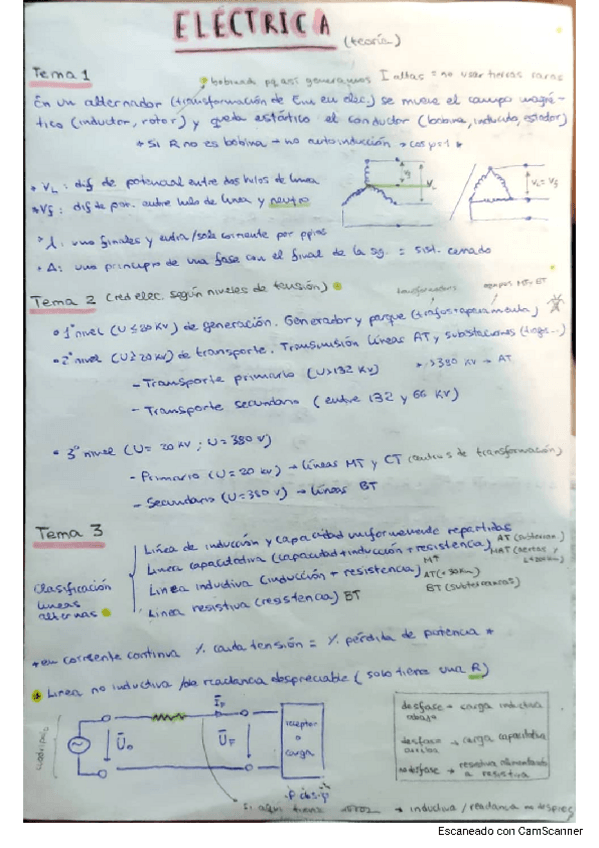 ELÉCTRICA (teoría)
Tema 1
bobinado pq así generamos I altas = no usar tierras raras
En un alternador (transformación de Em en elec.) se mueve el campo magné-
tico (inductor, rotor) y queda estático el conductor (bobina, inducido, estator)
* Si R no es bobina → no autoinducción → cos φ=1 *
* VL: dif de potencial entre dos hilos de línea
* Vf: dif de pot. entre hilo de línea y neutro
VL
VL = Vf
λ: uno finales y entra/sale corriente por ppios
Δ: uno principio de una fase con el final de la sg. = sist. cerrado
Tema 2 (red elec. según niveles de tensión)
transformadores
MT-BT
1º nivel (U ≤ 20 KV) de generación. Generador y parque
2º nivel (U ≥ 20 KV) de transporte. Transmisión líneas AT y subestaciones
- Transporte primario (U>132 KV)
>380 KV → AT
- Transporte secundario (entre 132 y 66 KV)
3º nivel (U= 20 KV ; U= 380 V)
- Primario (U= 20 KV) → líneas MT y CT (centros de transformación)
- Secundario (U=380 V) → líneas BT
Tema 3
Clasificación líneas alternas
Línea de inducción y capacidad uniformemente repartidas
Línea capacitativa (capacidad + inducción + resistencia)
Línea inductiva (inducción + resistencia)
Línea resistiva (resistencia) BT
MT
BT (subterráneas)
* en corriente continua % caída tensión = % pérdida de potencia *
* Línea no inductiva /de reactancia despreciable (solo tiene una R)
U0
IF
UF
receptor o carga
desfase → carga inductiva
abajo
desfase → carga capacitativa
arriba
no desfase → resistiva alimentando
a resistiva
Si aquí tiene
→ inductiva / reactancia no desprec
Escaneado con CamScanner